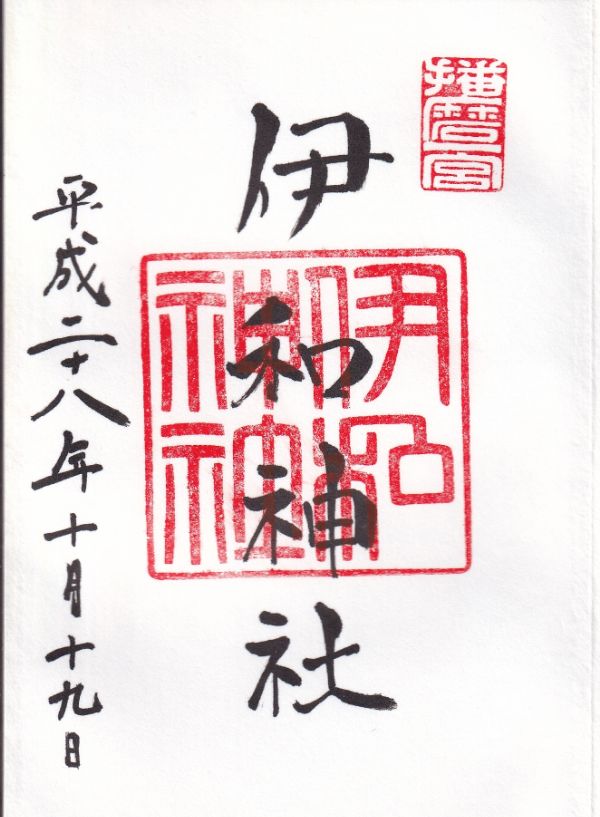 播磨一宮
伊和神社
伊和神社
平成二十八年十月十九日